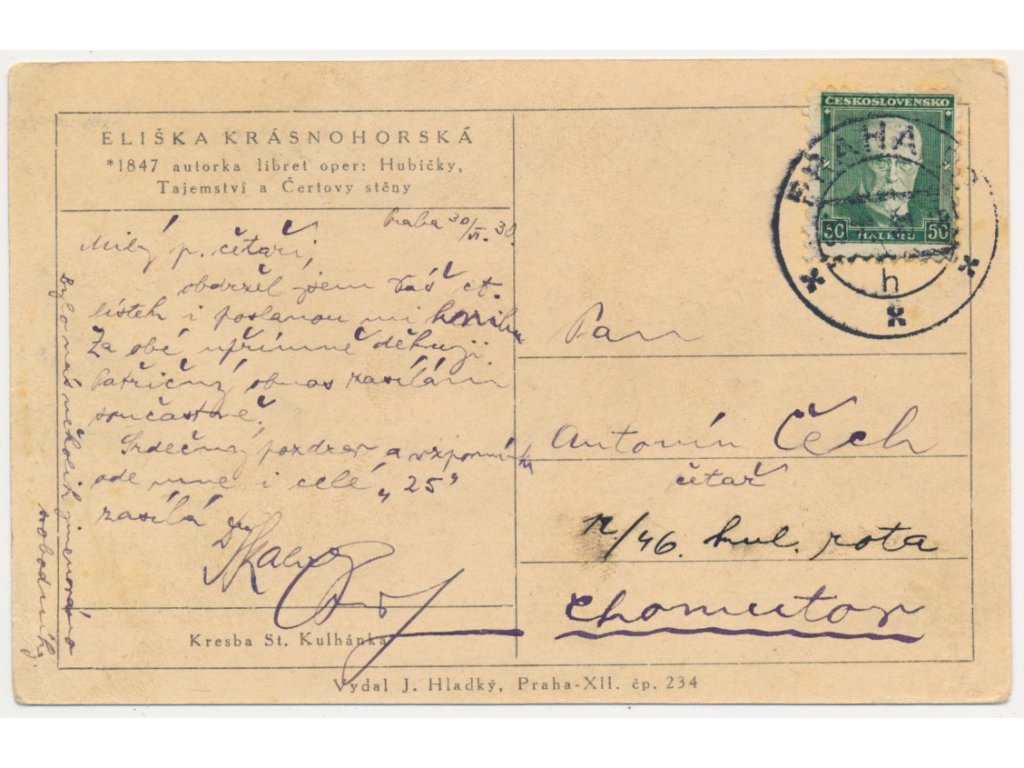 ELIŠKA KRÁSNOHORSKÁ
*1847 autorka libret oper: Hubičky,
Tajemství a Čertovy stěny
Praha 30/VI. 30.
Milý p. četaři,
obdržel jsem Váš ct.
lístek i poslanou mi knihu
Za obé upřímně děkuji.
Patřičný obnos zasílám
současně.
Srdečný pozdrav a vzpomínku
ode mne i celé „25“
zasílá
Bylo nás několik jmenováno
svobodníky.
Kresba St. Kulhánka
Vydal J. Hladký, Praha-XII. čp. 234
ČESKOSLOVENSKO
50 HALÉŘŮ 50
PRAHA
h
Pan
Antonín Čech
četař
12/46. kul. rota
Chomutov